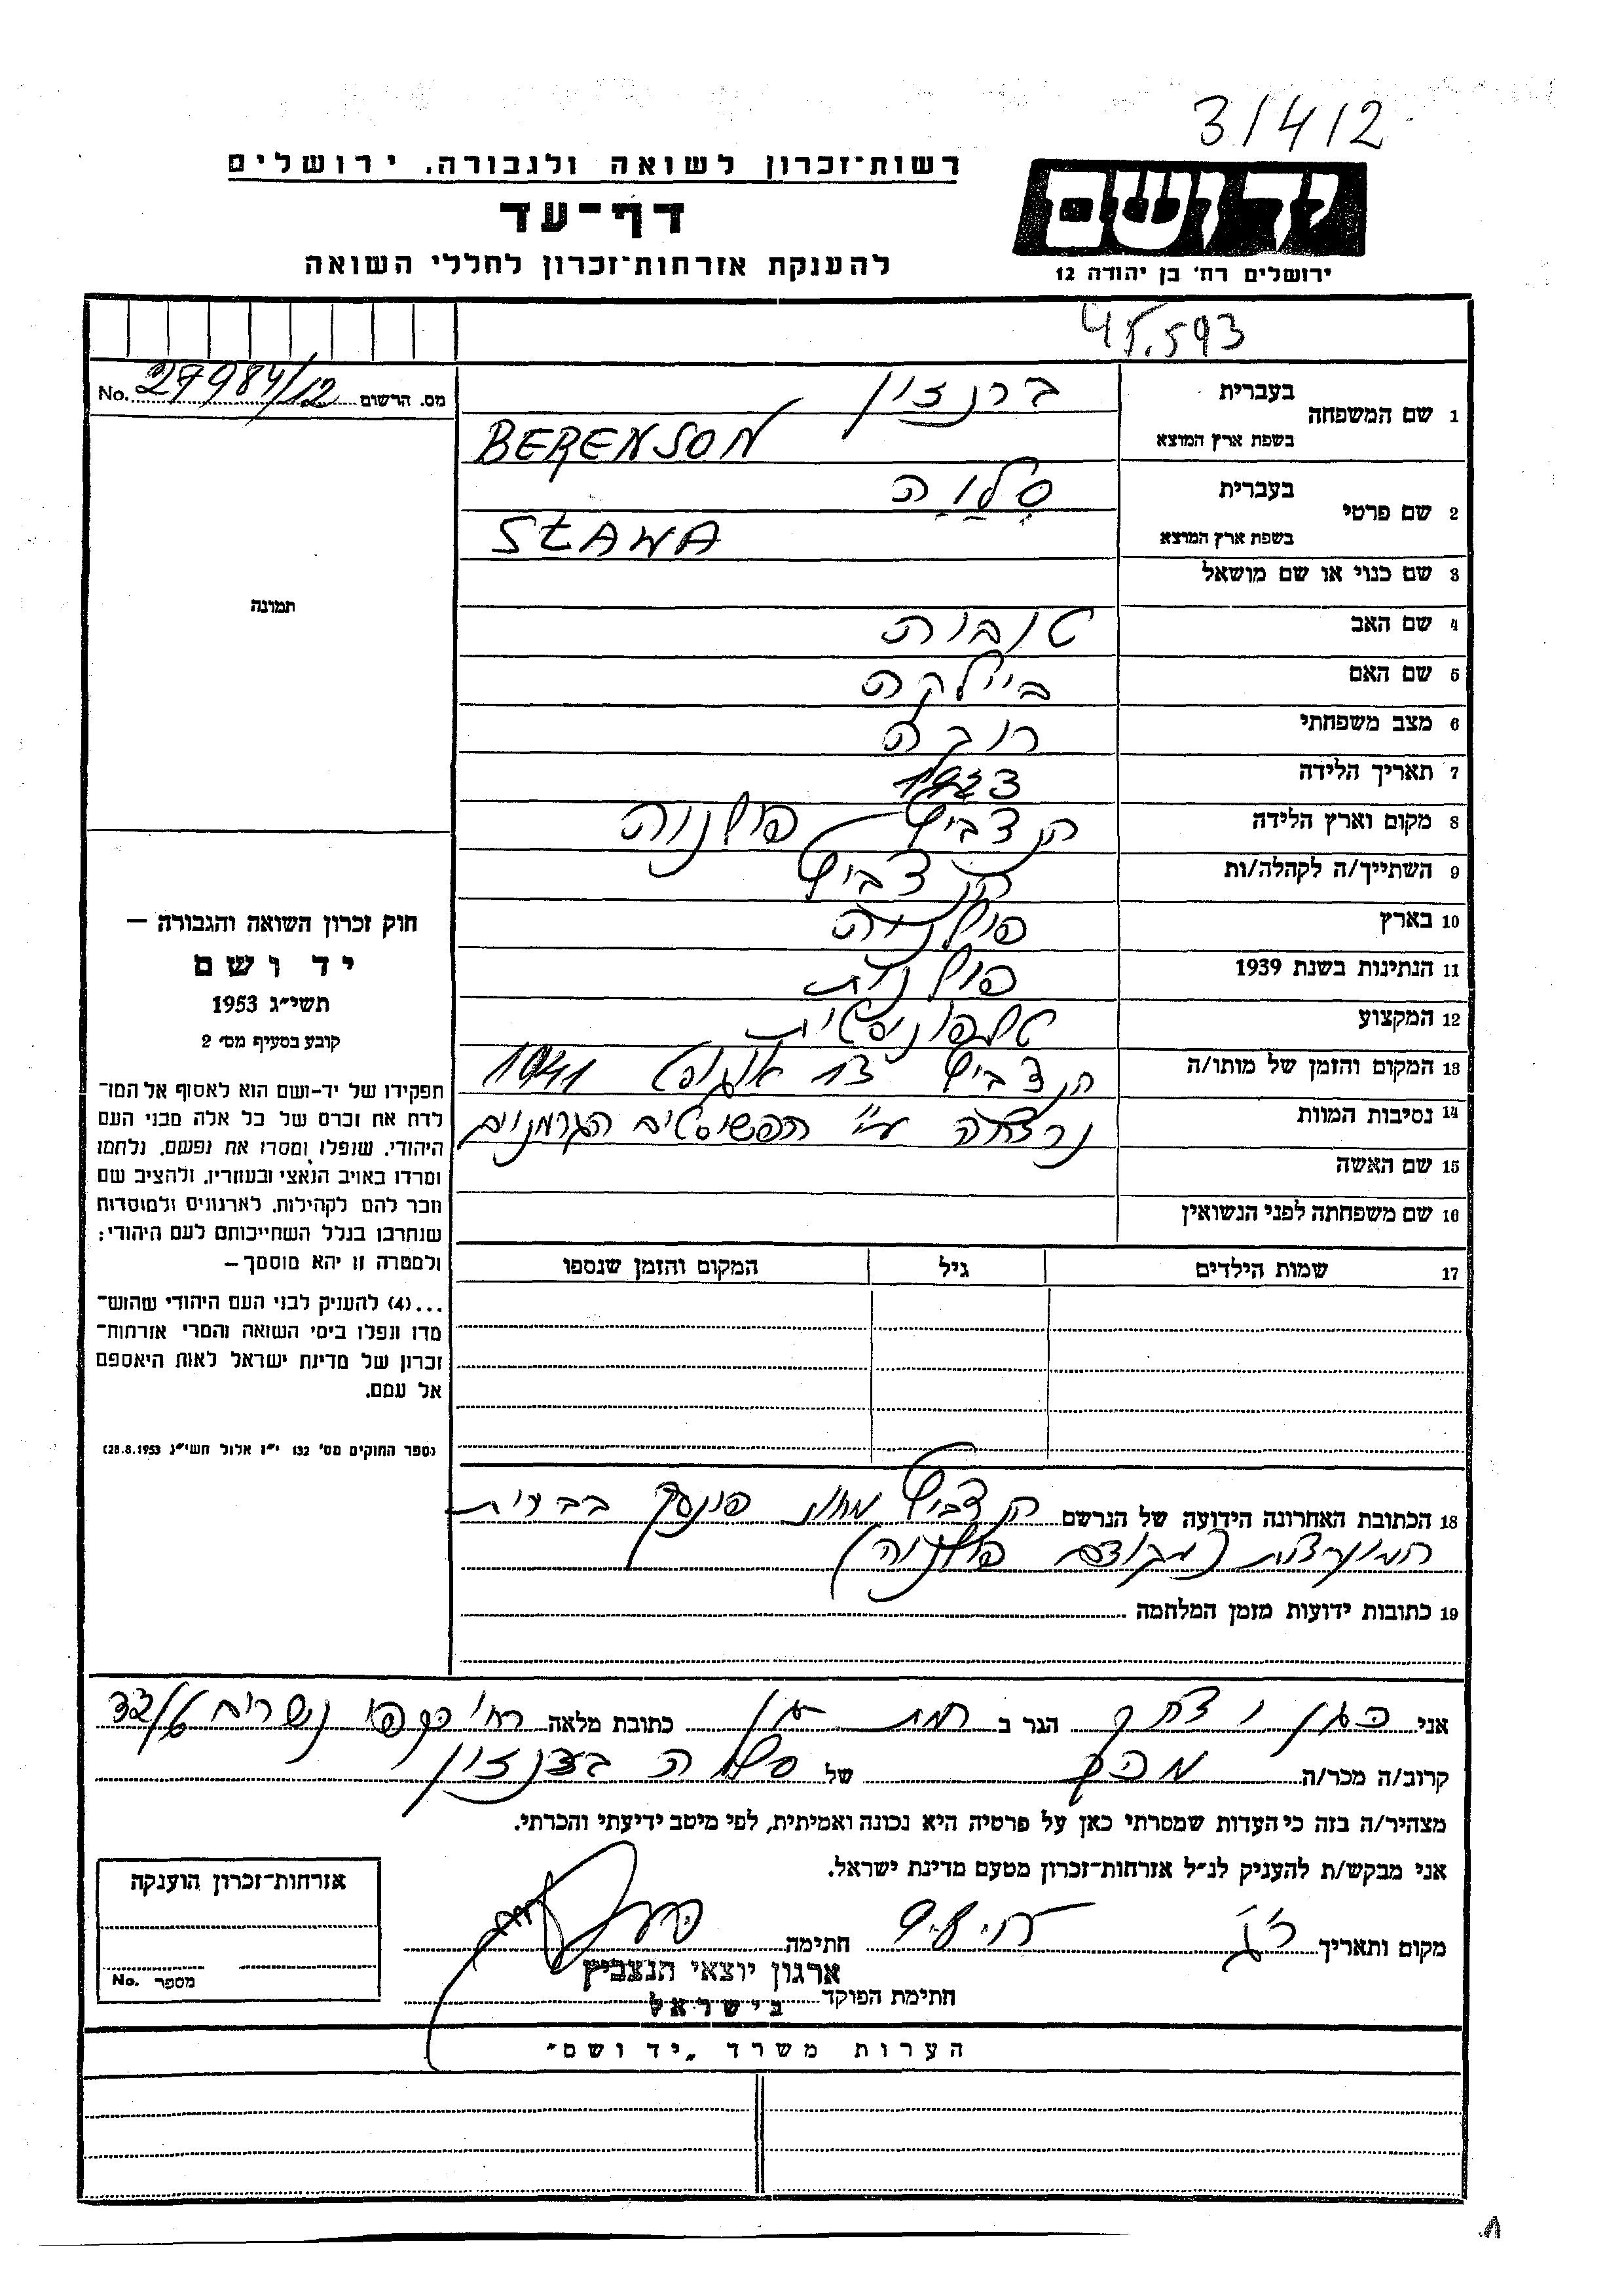 3/4/2
רשות־זכרון לשואה ולגבורה, ירושלים
דף־עד
להענקת אזרחות־זכרון לחללי השואה
ידושם
ירושלים רח' בן יהודה 12
45.593
מס. הרשום 27984/12 No.
1 שם המשפחה בעברית ברנזון
בשפת ארץ המוצא BERENSON
2 שם פרטי בעברית סלוה
בשפת ארץ המוצא SŁAWA
3 שם כנוי או שם מושאל
4 שם האב טובות
5 שם האם ביילקה
6 מצב משפחתי רוקה
7 תאריך הלידה 1923
8 מקום וארץ הלידה הנצביץ פולניה
9 השתייך/ה לקהלה/ות הנצביץ
10 בארץ פולניה
11 הנתינות בשנת 1939 פולנית
12 המקצוע טלפוניסטית
13 המקום והזמן של מותו/ה הנצביץ אוגוסט 1941
14 נסיבות המוות נרצחה ע"י הפשיסטים הגרמנים
15 שם האשה
16 שם משפחתה לפני הנשואין
17 שמות הילדים גיל המקום והזמן שנספו
18 הכתובת האחרונה הידועה של הנרשם הנצביץ מחוז פינסק בברית
המועצות (מקודם פולניה)
19 כתובות ידועות מזמן המלחמה
תמונה
חוק זכרון השואה והגבורה —
יד ושם
תשי״ג 1953
קובע בסעיף מס׳ 2
תפקידו של יד־ושם הוא לאסוף אל המו־
לדת את זכרם של כל אלה מבני העם
היהודי, שנפלו ומסרו את נפשם, נלחמו
ומרדו באויב הנאצי ובעוזריו, ולהציב שם
וזכר להם לקהילות, לארגונים ולמוסדות
שנחרבו בגלל השתייכותם לעם היהודי;
ולמטרה זו יהא מוסמך —
...(4) להעניק לבני העם היהודי שהוש־
מדו ונפלו בימי השואה והמרי אזרחות־
זכרון של מדינת ישראל לאות היאספם
אל עמם.
(ספר החוקים מס׳ 132 י״ז אלול תשי״ג 28.8.1953)
אני יצחק הגר ב רמת גן כתובת מלאה רח'
קרוב/ה מכר/ה מכר של סלוה ברנזון
מצהיר/ה בזה כי העדות שמסרתי כאן על פרטיה היא נכונה ואמיתית, לפי מיטב ידיעתי והכרתי.
אני מבקש/ת להעניק לנ״ל אזרחות־זכרון מטעם מדינת ישראל.
מקום ותאריך ר"ג 9.8 חתימה
ארגון יוצאי הנצביץ
חתימת הפוקד בישראל
אזרחות־זכרון הוענקה
מספר No.
הערות משרד „יד ושם״